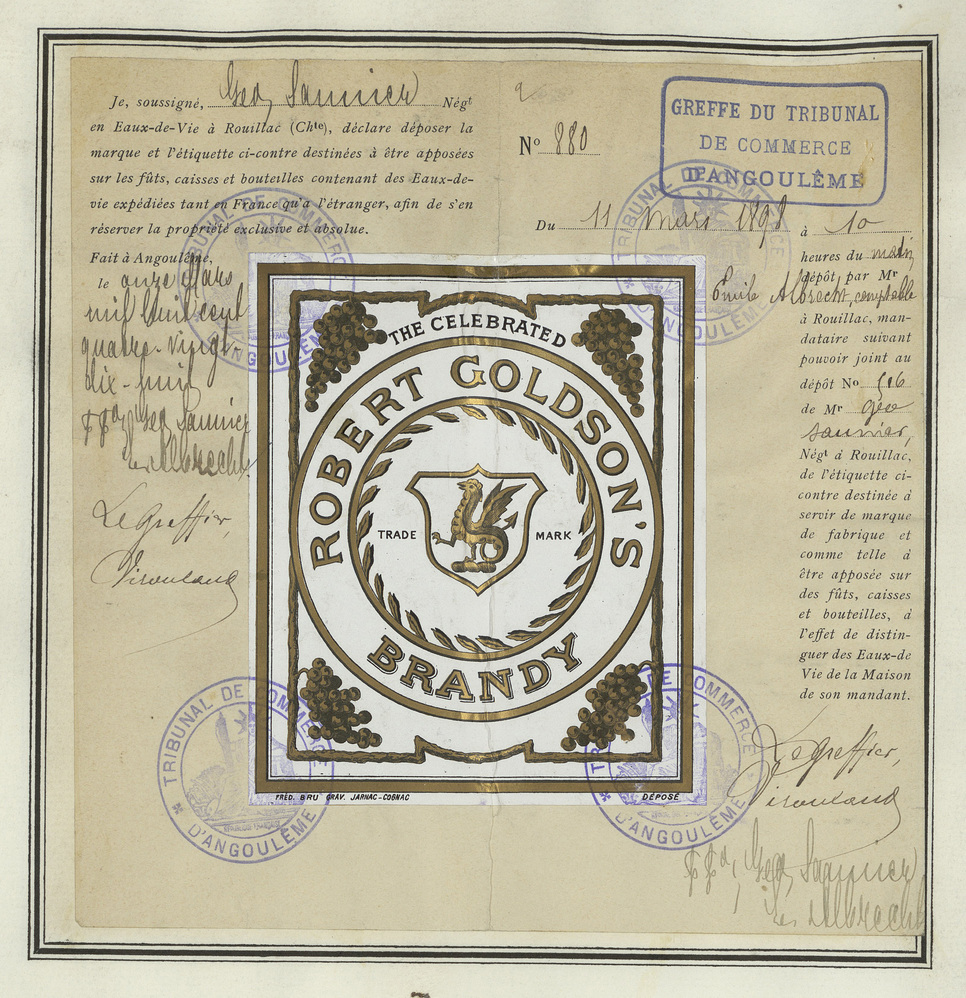 Je, soussigné, Geo Saunier Négt
en Eaux-de-Vie à Rouillac (Chte), déclare déposer la
marque et l'étiquette ci-contre destinées à être apposées
sur les fûts, caisses et bouteilles contenant des Eaux-de-
vie expédiées tant en France qu'à l'étranger, afin de s'en
réserver la propriété exclusive et absolue.
Fait à Angoulême,
le onze Mars
mil huit cent
quatre-vingt-
dix-huit
ppon Geo Saunier
Em Albrecht
Le Greffier,
No 880
GREFFE DU TRIBUNAL
DE COMMERCE
D'ANGOULÊME
Du 11 mars 1898 à 10
heures du matin
dépôt par Mr
Emile Albrecht, comptable
à Rouillac, man-
dataire suivant
pouvoir joint au
dépôt No 516
de Mr Geo
Saunier,
Négt à Rouillac,
de l'étiquette ci-
contre destinée à
servir de marque
de fabrique et
comme telle à
être apposée sur
des fûts, caisses
et bouteilles, à
l'effet de distin-
guer des Eaux-de
Vie de la Maison
de son mandant.
Le Greffier,
ppon Geo Saunier
Em Albrecht
THE CELEBRATED
ROBERT GOLDSON'S
TRADE MARK
BRANDY
FRÉD. BRU GRAV. JARNAC-COGNAC
DÉPOSÉ
TRIBUNAL DE COMMERCE
D'ANGOULÊME
TRIBUNAL DE COMMERCE
D'ANGOULÊME
TRIBUNAL DE COMMERCE
* D'ANGOULÊME *
TRIBUNAL DE COMMERCE
* D'ANGOULÊME